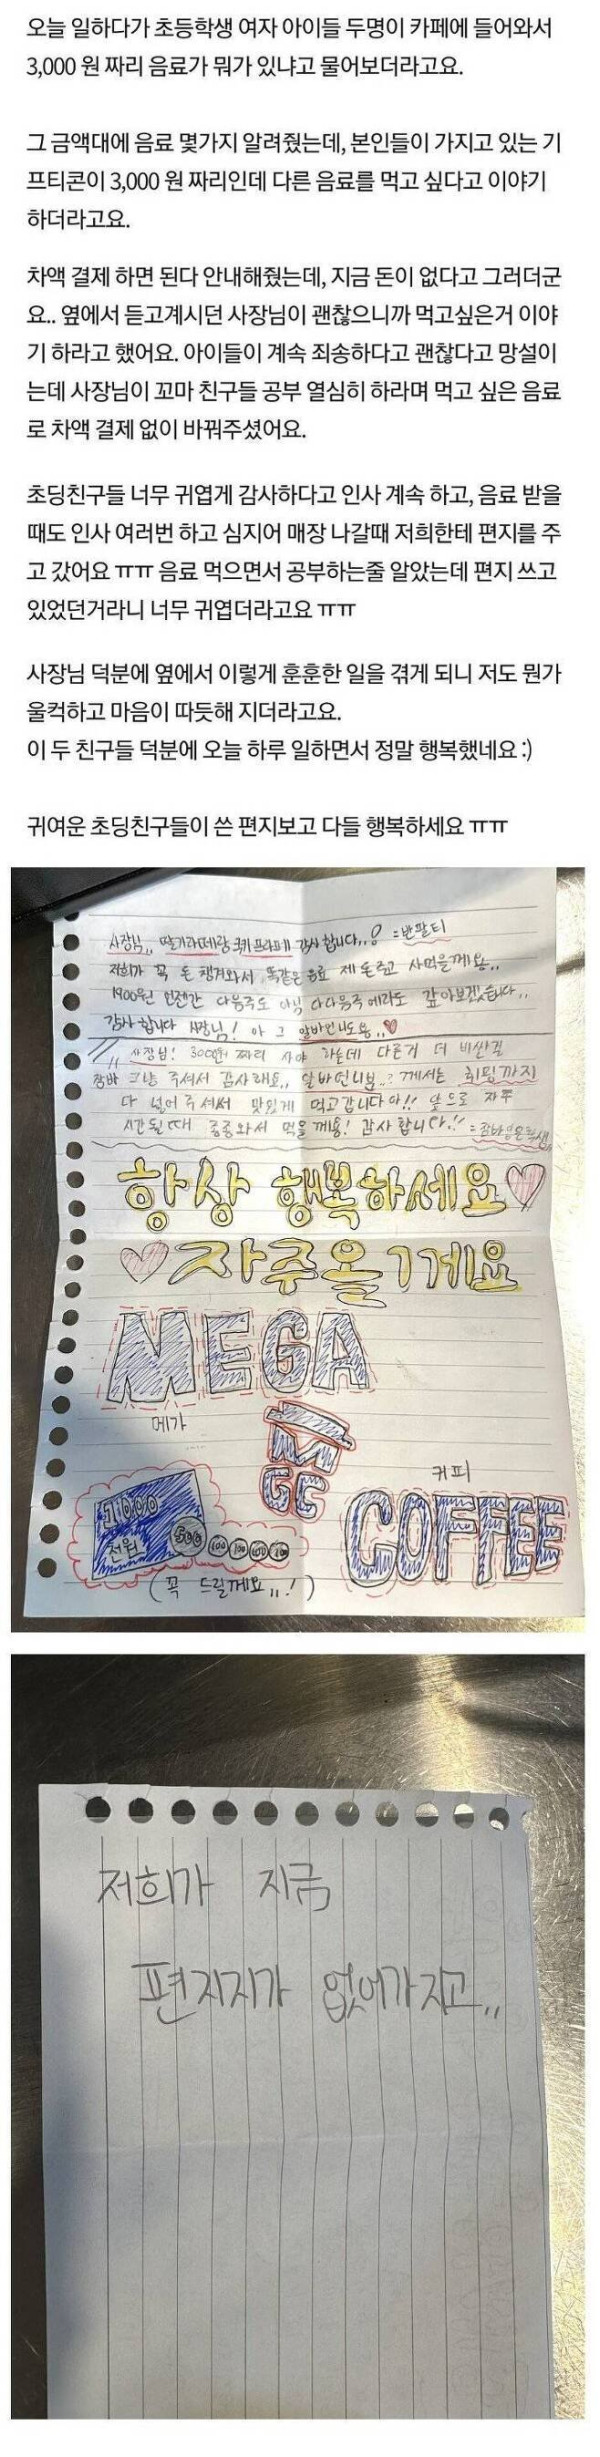 오늘 일하다가 초등학생 여자 아이들 두명이 카페에 들어와서
3,000 원 짜리 음료가 뭐가 있냐고 물어보더라고요.
그 금액대에 음료 몇가지 알려줬는데, 본인들이 가지고 있는 기
프티콘이 3,000 원 짜리인데 다른 음료를 먹고 싶다고 이야기
하더라고요.
차액 결제 하면 된다 안내해줬는데, 지금 돈이 없다고 그러더군
요.. 옆에서 듣고계시던 사장님이 괜찮으니까 먹고싶은거 이야
기 하라고 했어요. 아이들이 계속 죄송하다고 괜찮다고 망설이
는데 사장님이 꼬마 친구들 공부 열심히 하라며 먹고 싶은 음료
로 차액 결제 없이 바꿔주셨어요.
초딩친구들 너무 귀엽게 감사하다고 인사 계속 하고, 음료 받을
때도 인사 여러번 하고 심지어 매장 나갈때 저희한테 편지를 주
고 갔어요 ㅠㅠ 음료 먹으면서 공부하는줄 알았는데 편지 쓰고
있었던거라니 너무 귀엽더라고요 ㅠㅠ
사장님 덕분에 옆에서 이렇게 훈훈한 일을 겪게 되니 저도 뭔가
울컥하고 마음이 따듯해 지더라고요.
이 두 친구들 덕분에 오늘 하루 일하면서 정말 행복했네요 :)
귀여운 초딩친구들이 쓴 편지보고 다들 행복하세요 ㅠㅠ
사장님,, 딸기라떼랑 쿠키프라페 감사합니다,,! =반팔티
저희가 꼭 돈 챙겨와서 똑같은 음료 제 돈주고 사먹을께용,,
1900원 인전간 다음주도 아님 다다음주에라도 갚아보겠습니다,,
감사합니다 사장님! 아 그 알바언니도용,,♥
,, 사장님! 3000원 짜리 사야 하는데 다른거 더 비싼걸
그냥 주셔서 감사해요,, 알바언니분..? 께서는 휘핑까지
다 넣어주셔서 맛있게 먹고갑니다아!! 앞으로 자주
시간될때 종종와서 먹을께용! 감사합니다!!
항상 행복하세요♡
♡자주올게요
MEGA
메가
MGC
커피
COFFEE
1000
천원
500 100 100 100 100
(꼭 드릴께요,,!)
저희가 지금
편지지가 없어가지고,,